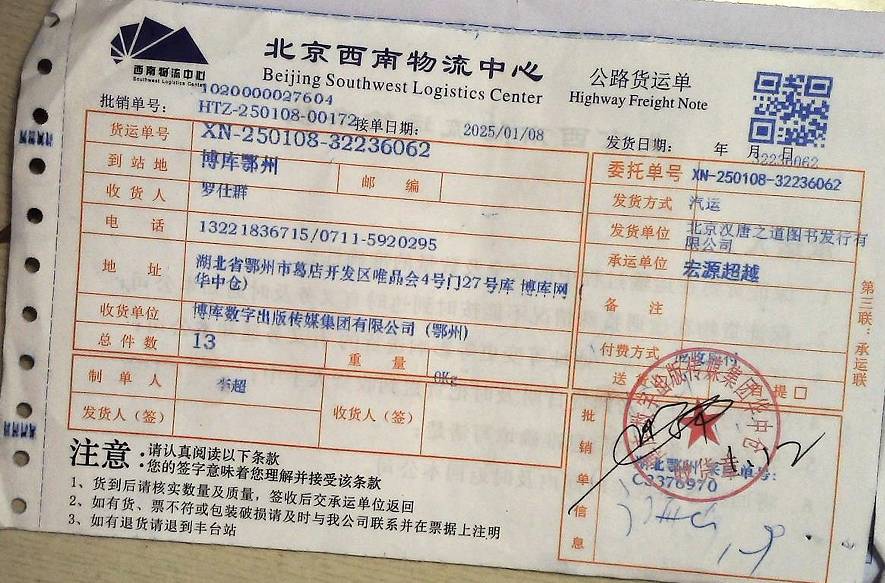 西南物流中心
Southwest Logistics Center
北京西南物流中心
Beijing Southwest Logistics Center
公路货运单
Highway Freight Note
1020000027604
批销单号: HTZ-250108-00172
接单日期: 2025/01/08
发货日期: 年 月 日
32236062
货运单号 XN-250108-32236062
委托单号 XN-250108-32236062
到站地 博库鄂州
邮编
发货方式 汽运
收货人 罗仕群
发货单位 北京汉唐之道图书发行有
限公司
电话 13221836715/0711-5920295
承运单位 宏源超越
地址 湖北省鄂州市葛店开发区唯品会4号门27号库 博库网(
华中仓)
备注
收货单位 博库数字出版传媒集团有限公司(鄂州)
付费方式
总件数 13
重量 0Kg
送货
提 口
制单人 李超
发货人(签)
收货人(签)
批销单信息
湖北鄂州
单号:
C2378970
第三联:承运联
注意:请认真阅读以下条款
您的签字意味着您理解并接受该条款
1、货到后请核实数量及质量,签收后交承运单位返回
2、如有货、票不符或包装破损请及时与我公司联系并在票据上注明
3、如有退货请退到丰台站